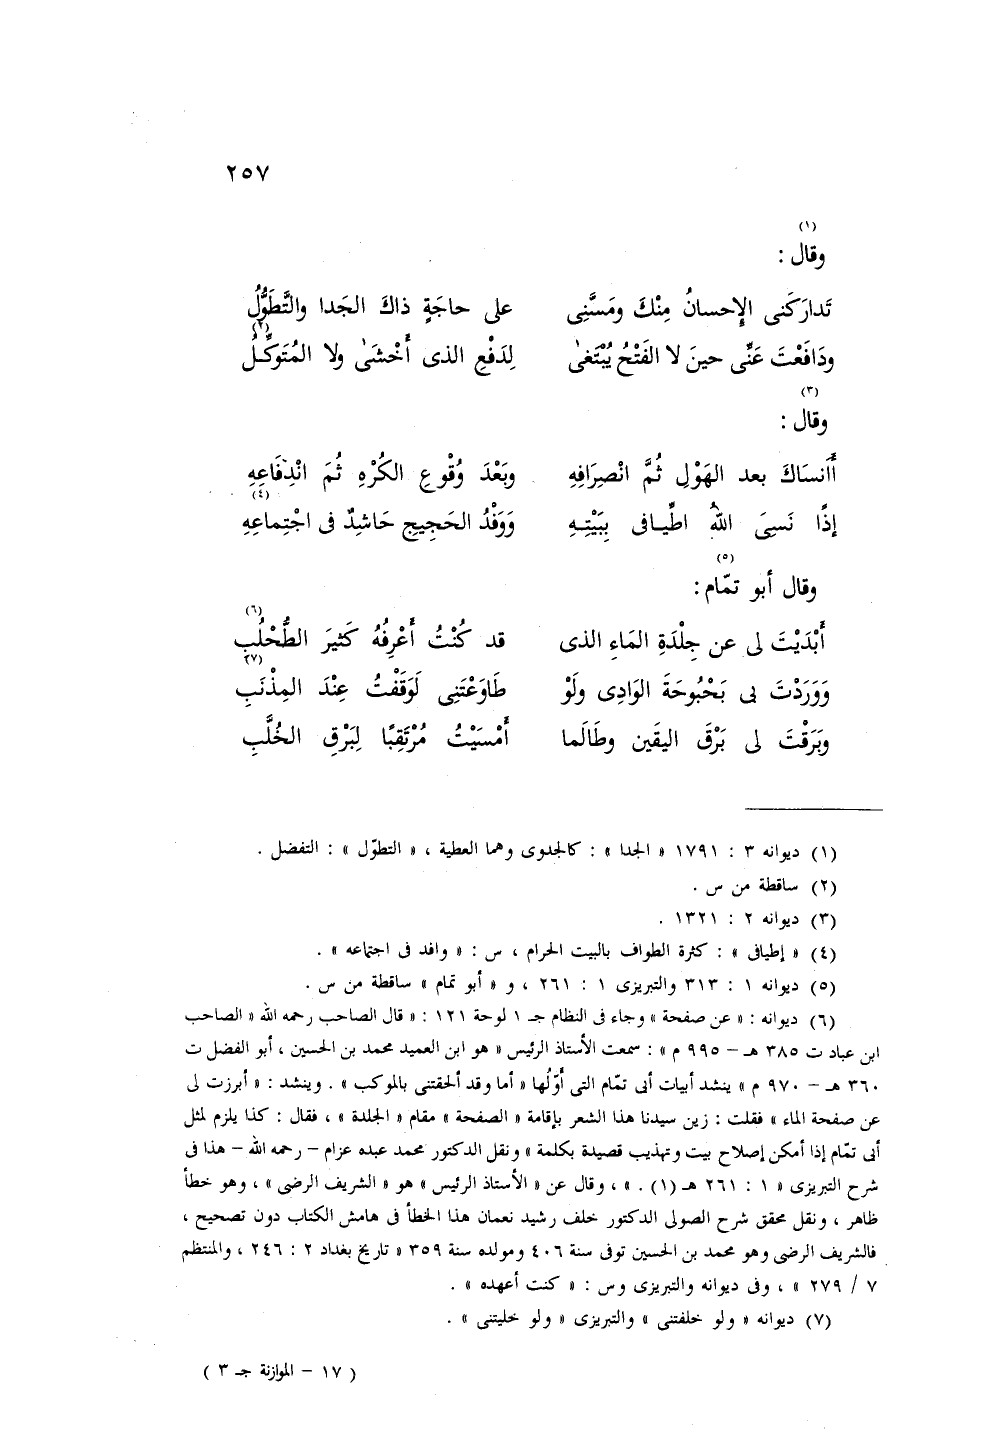 ٢٥٧
(١)
وقال :
تَدارَكَنى الإِحسانُ مِنْكَ ومَسَّنِى    على حاجَةٍ ذاكَ الجَدا والتَّطَوُّلُ
(٢)
ودَافَعْتَ عَنِّى حينَ لا الفَتْحُ يُبْتَغىٰ    لِدَفْعِ الذى أَخْشَىٰ ولا المُتَوكِّلُ
(٣)
وقال :
أَأَنساكَ بعد الهَوْلِ ثُمَّ انْصِرَافِهِ    وبَعْدَ وُقُوعِ الكُرْهِ ثُمَ انْدِفَاعِهِ
(٤)
إذًا نَسِىَ اللهُ اطِّيافى بِبَيْتِهِ    وَوَفْدُ الحَجِيجِ حَاشِدٌ فى اجْتِماعِهِ
(٥)
وقال أبو تمّام :
(٦)
أَبْدَيْتَ لى عن جِلْدَةِ المَاءِ الذى    قد كُنْتُ أَعْرِفُهُ كَثيرَ الطُّحْلُبِ
(٧)
وَوَرَدْتَ بى بَحْبُوحَةَ الوَادِى ولَوْ    طَاوَعْتَنِى لَوَقَفْتُ عِنْدَ المِذْنَبِ
وبَرَقْتَ لى بَرْقَ اليَقين وطَالَما    أَمْسَيْتُ مُرْتَقِبًا لِبَرْقِ الخُلَّبِ
(١) ديوانه ٣ : ١٧٩١ « الجدا » : كالجدوى وهما العطية ، « التطوّل » : التفضل .
(٢) ساقطة من س .
(٣) ديوانه ٢ : ١٣٢١ .
(٤) « إطيافى » : كثرة الطواف بالبيت الحرام ، س : « وافد فى اجتماعه » .
(٥) ديوانه ١ : ٣١٣ والتبريزى ١ : ٢٦١ ، و « أبو تمام » ساقطة من س .
(٦) ديوانه : « عن صفحة » وجاء فى النظام جـ ١ لوحة ١٢١ : « قال الصاحب رحمه الله « الصاحب
ابن عباد ت ٣٨٥ هـ – ٩٩٥ م » : سمعت الأستاذ الرئيس « هو ابن العميد محمد بن الحسين ، أبو الفضل ت
٣٦٠ هـ – ٩٧٠ م » ينشد أبيات أبى تمّام التى أوّلها « أما وقد ألحقتنى بالموكب » . وينشد : « أبرزت لى
عن صفحة الماء » فقلت : زين سيدنا هذا الشعر بإقامة « الصفحة » مقام « الجلدة » ، فقال : كذا يلزم لمثل
أبى تمّام إذا أمكن إصلاح بيت وتهذيب قصيدة بكلمة » ونقل الدكتور محمد عبده عزام – رحمه الله – هذا فى
شرح التبريزى « ١ : ٢٦١ هـ (١) . » ، وقال عن « الأستاذ الرئيس » هو « الشريف الرضى » ، وهو خطأ
ظاهر ، ونقل محقق شرح الصولى الدكتور خلف رشيد نعمان هذا الخطأ فى هامش الكتاب دون تصحيح ،
فالشريف الرضى وهو محمد بن الحسين توفى سنة ٤٠٦ ومولده سنة ٣٥٩ « تاريخ بغداد ٢ : ٢٤٦ ، والمنتظم
٧ / ٢٧٩ » ، وفى ديوانه والتبريزى وس : « كنت أعهده » .
(٧) ديوانه « ولو خلفتنى » والتبريزى « ولو خليتنى » .
( ١٧ – الموازنة جـ ٣ )